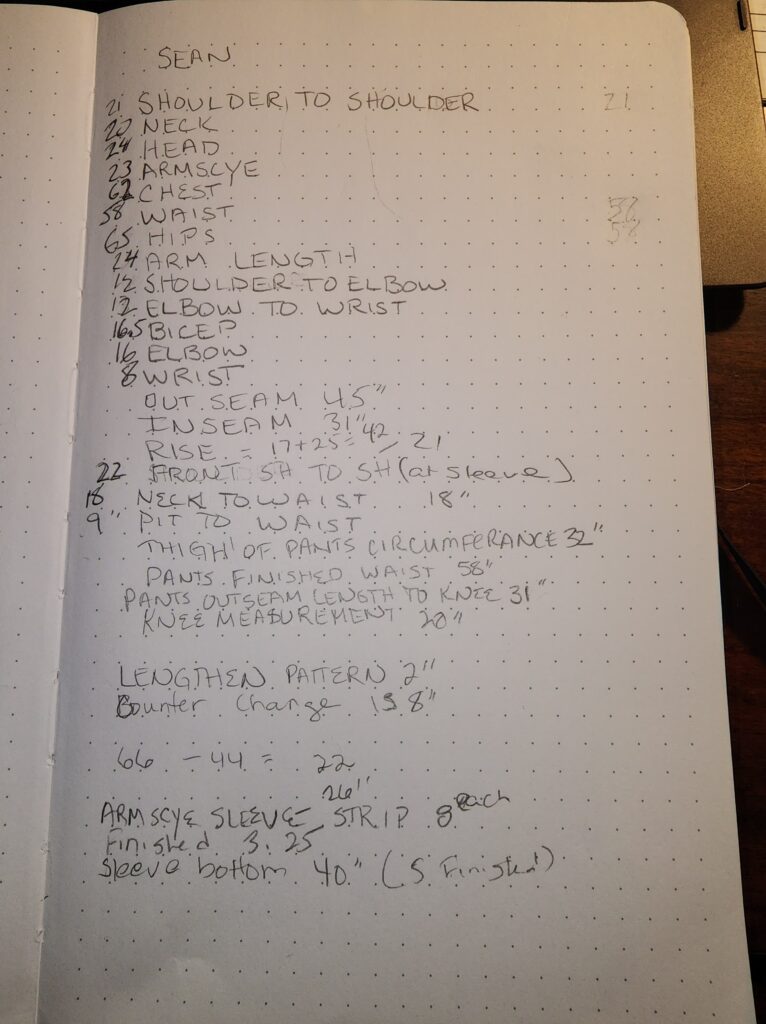 SEAN
21 SHOULDER TO SHOULDER 21
20 NECK
24 HEAD
23 ARMSCYE
62 CHEST
58 WAIST 58
65 HIPS 58
24 ARM LENGTH
12 SHOULDER TO ELBOW
12 ELBOW TO WRIST
16.5 BICEP
16 ELBOW
8 WRIST
OUT SEAM 45"
INSEAM 31"
RISE = 17+25= 42 / 21
22 FRONT SH TO SH (at sleeve)
18 NECK TO WAIST 18"
9" PIT TO WAIST
THIGH OF PANTS CIRCUMFERANCE 32"
PANTS FINISHED WAIST 58"
PANTS OUTSEAM LENGTH TO KNEE 31"
KNEE MEASUREMENT 20"
LENGTHEN PATTERN 2"
Change 8"
66 - 44 = 22
26"
ARMSCYE SLEEVE STRIP 8 each
Finished 3.25
Sleeve bottom 40" (5 Finished)